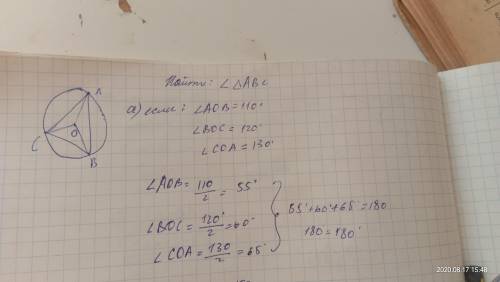 Найти: ∠ △ABC
A
а) если: ∠AOB = 110°
∠BOC = 120°
∠COA = 130°
O
C
B
∠AOB = 110/2 = 55°
∠BOC = 120°/2 = 60°
∠COA = 130/2 = 65°
55°+60°+65=180
180=180°
2020.08.17 15:48